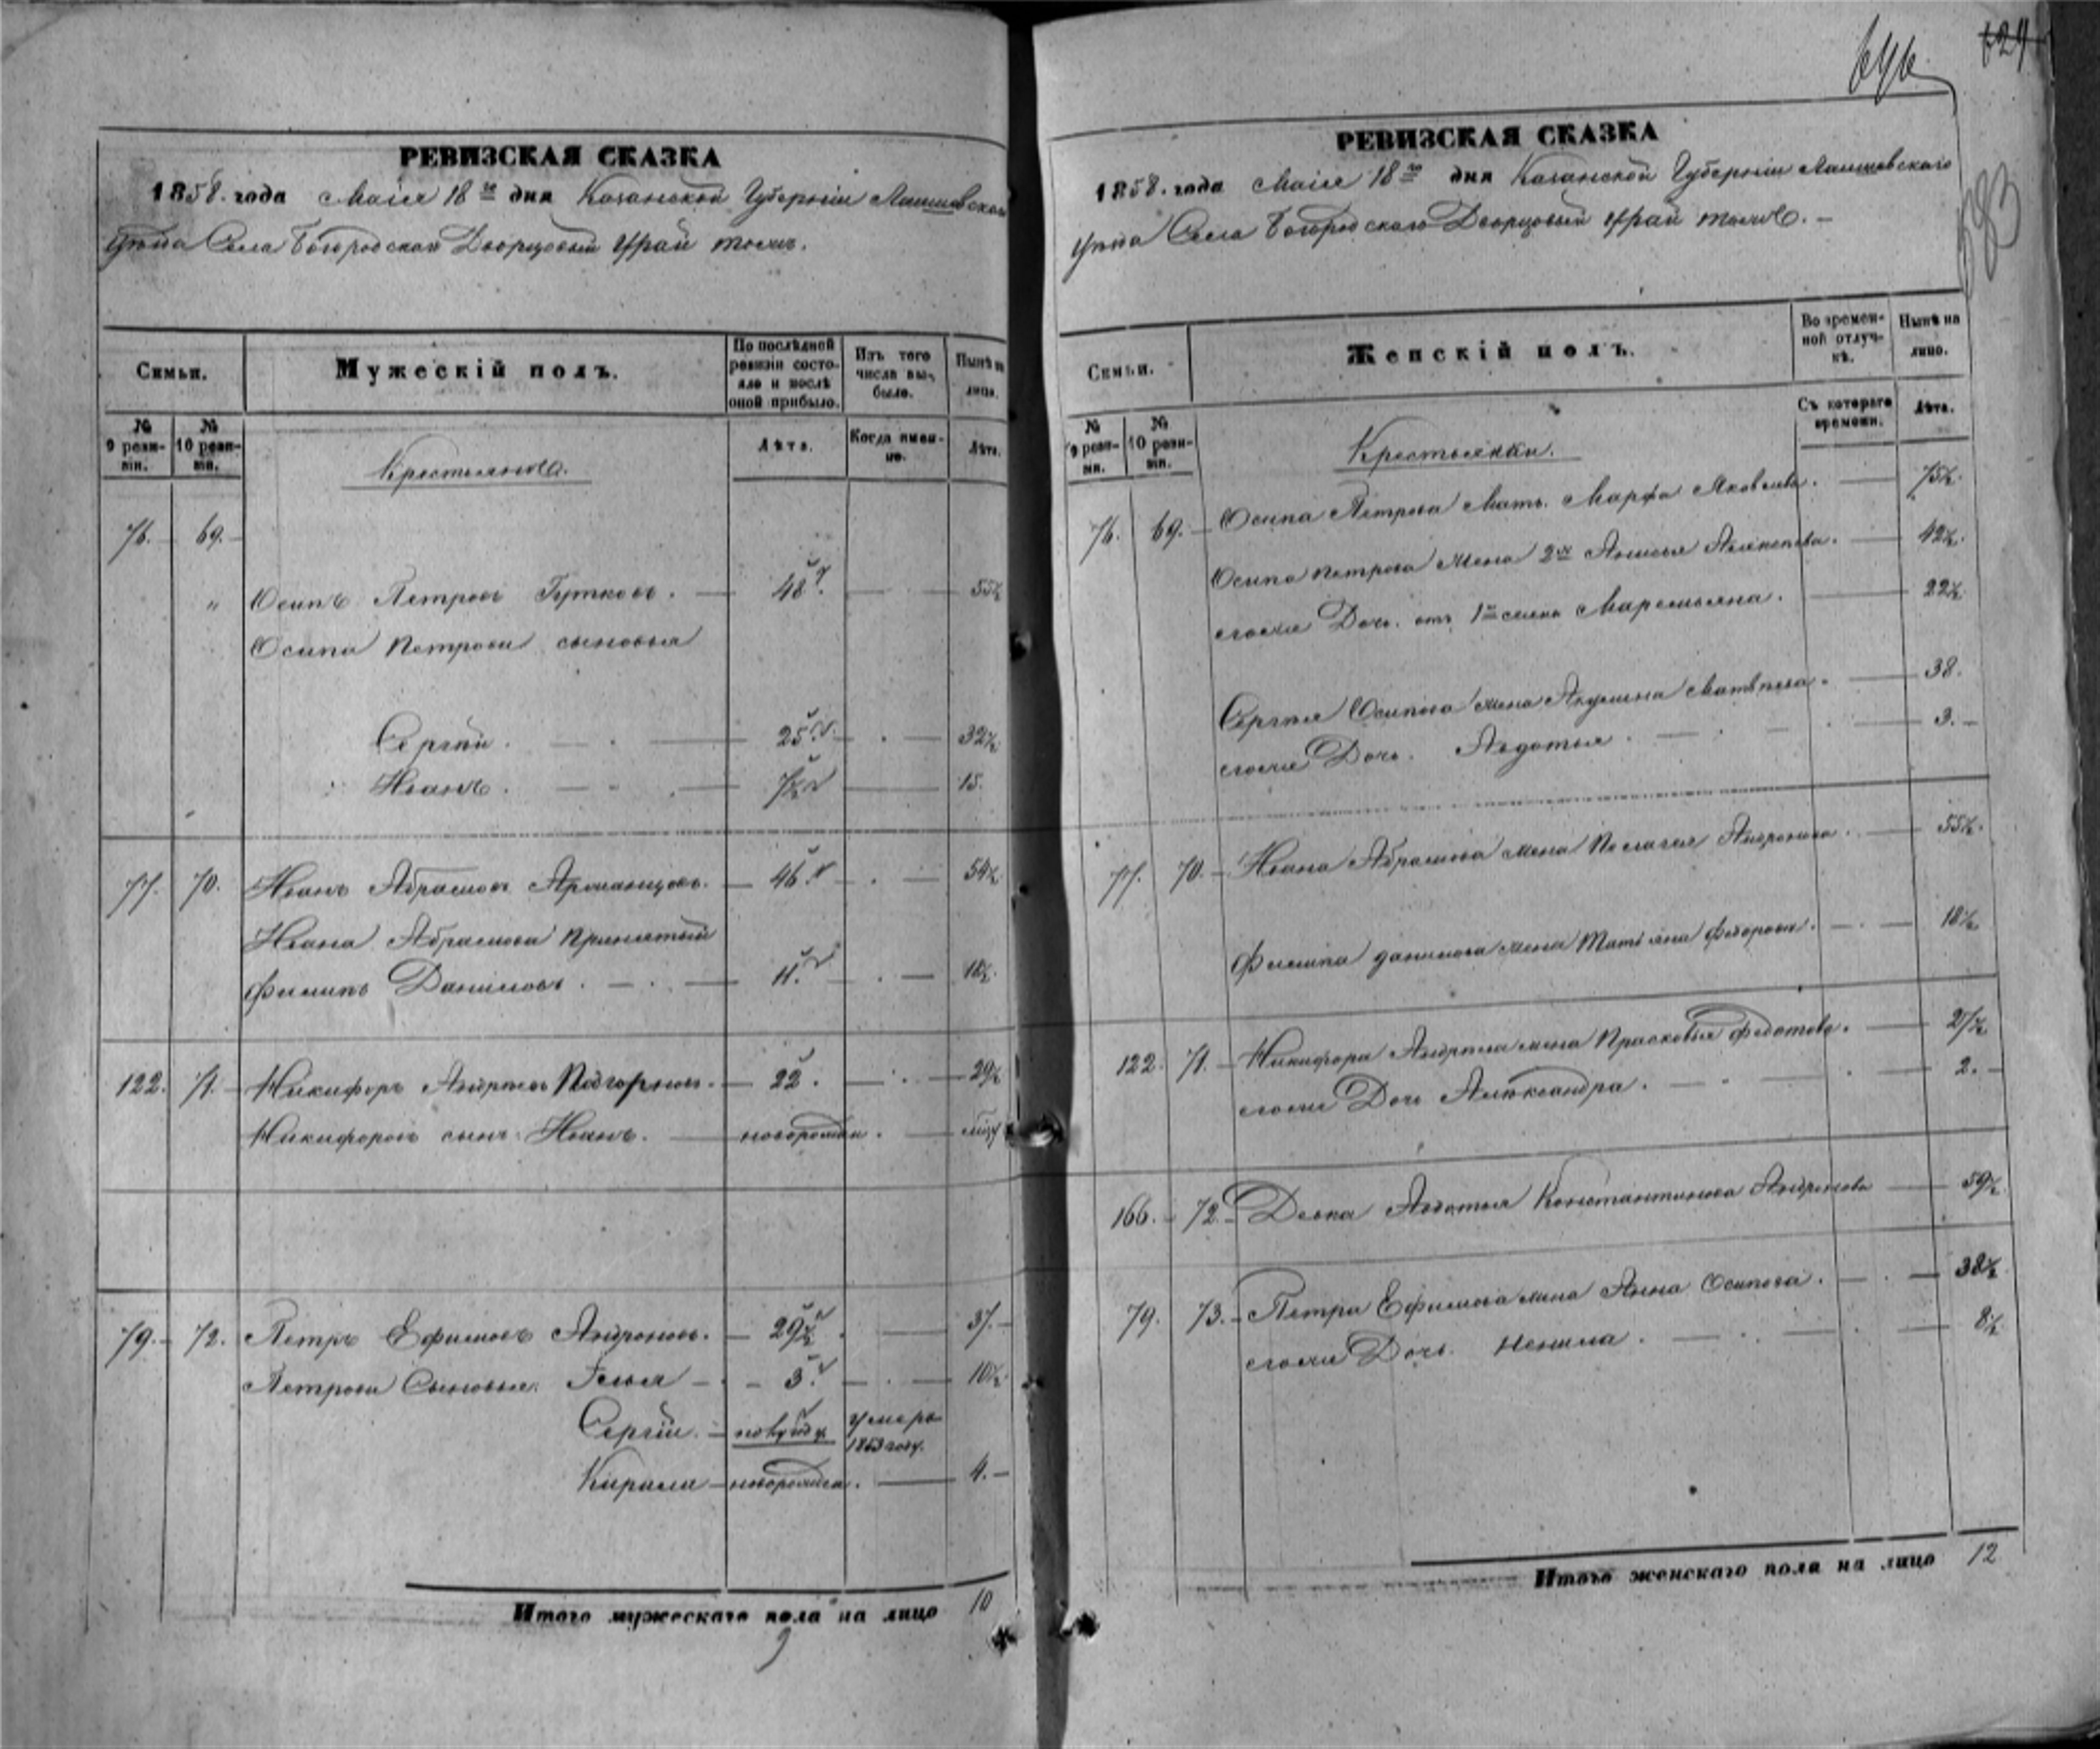 РЕВИЗСКАЯ СКАЗКА
1858. года Маія 18 го дня Казанской Губерніи Лаишевскаго
уѣзда Села Богородскаго Дворцовый Урай тожъ.
Семьи.
Мужескій полъ.
По послѣдней ревизіи состояло и послѣ оной прибыло.
Изъ того числа выбыло.
Нынѣ на лицо.
№ 9 ревизіи.
№ 10 ревизіи.
Лѣта.
Когда именно.
Лѣта.
Крестьянъ.
76. 69.
" Осипъ Петровъ 48. 55½
Осипа Петрова сыновья
Сергѣй. 25. 32½
Иванъ. 7½ 15.
77. 70. Иванъ Абрамовъ 46. 54½
Ивана Абрамова принятый
Филипъ Даниловъ. 11. 18½
122. 71. Никифоръ Андреевъ 22. 29½
Никифоровъ сынъ Иванъ. новорожден.
79. 72. Петръ Ефимовъ Андроновъ. 29½ 37.
Петровы Сыновья: Илья 3. 10½
Сергѣй. умеръ 1853 году.
Кирила новорожден. 4.
Итого мужескаго пола на лицо 10
9
646
129
583
РЕВИЗСКАЯ СКАЗКА
1858. года Маія 18 го дня Казанской Губерніи Лаишевскаго
уѣзда Села Богородскаго Дворцовый Урай тожъ.
Семьи.
Женскій полъ.
Во временной отлучкѣ.
Нынѣ на лицо.
№ 9 ревизіи.
№ 10 ревизіи.
Съ котораго времени.
Лѣта.
Крестьянки.
76. 69. Осипа Петрова Мать Марфа Яковлева. 75½
Осипа Петрова жена 2я Анисья 42½
егоже Дочь отъ 1й жены Маремьяна. 22½
Сергѣя Осипова жена Акулина Матвѣева. 38.
егоже Дочь Авдотья. 3.
77. 70. Ивана Абрамова жена Пелагея Андронова. 55½
Филипа Данилова жена Татьяна Федорова. 18½
122. 71. Никифора Андреева жена Прасковья Федотова. 27½
егоже Дочь Александра. 2.
166. 72. Девка Авдотья Константинова Андронова 59½
79. 73. Петра Ефимова жена Анна Осипова. 38½
егоже Дочь Ненила. 8½
Итого женскаго пола на лицо 12